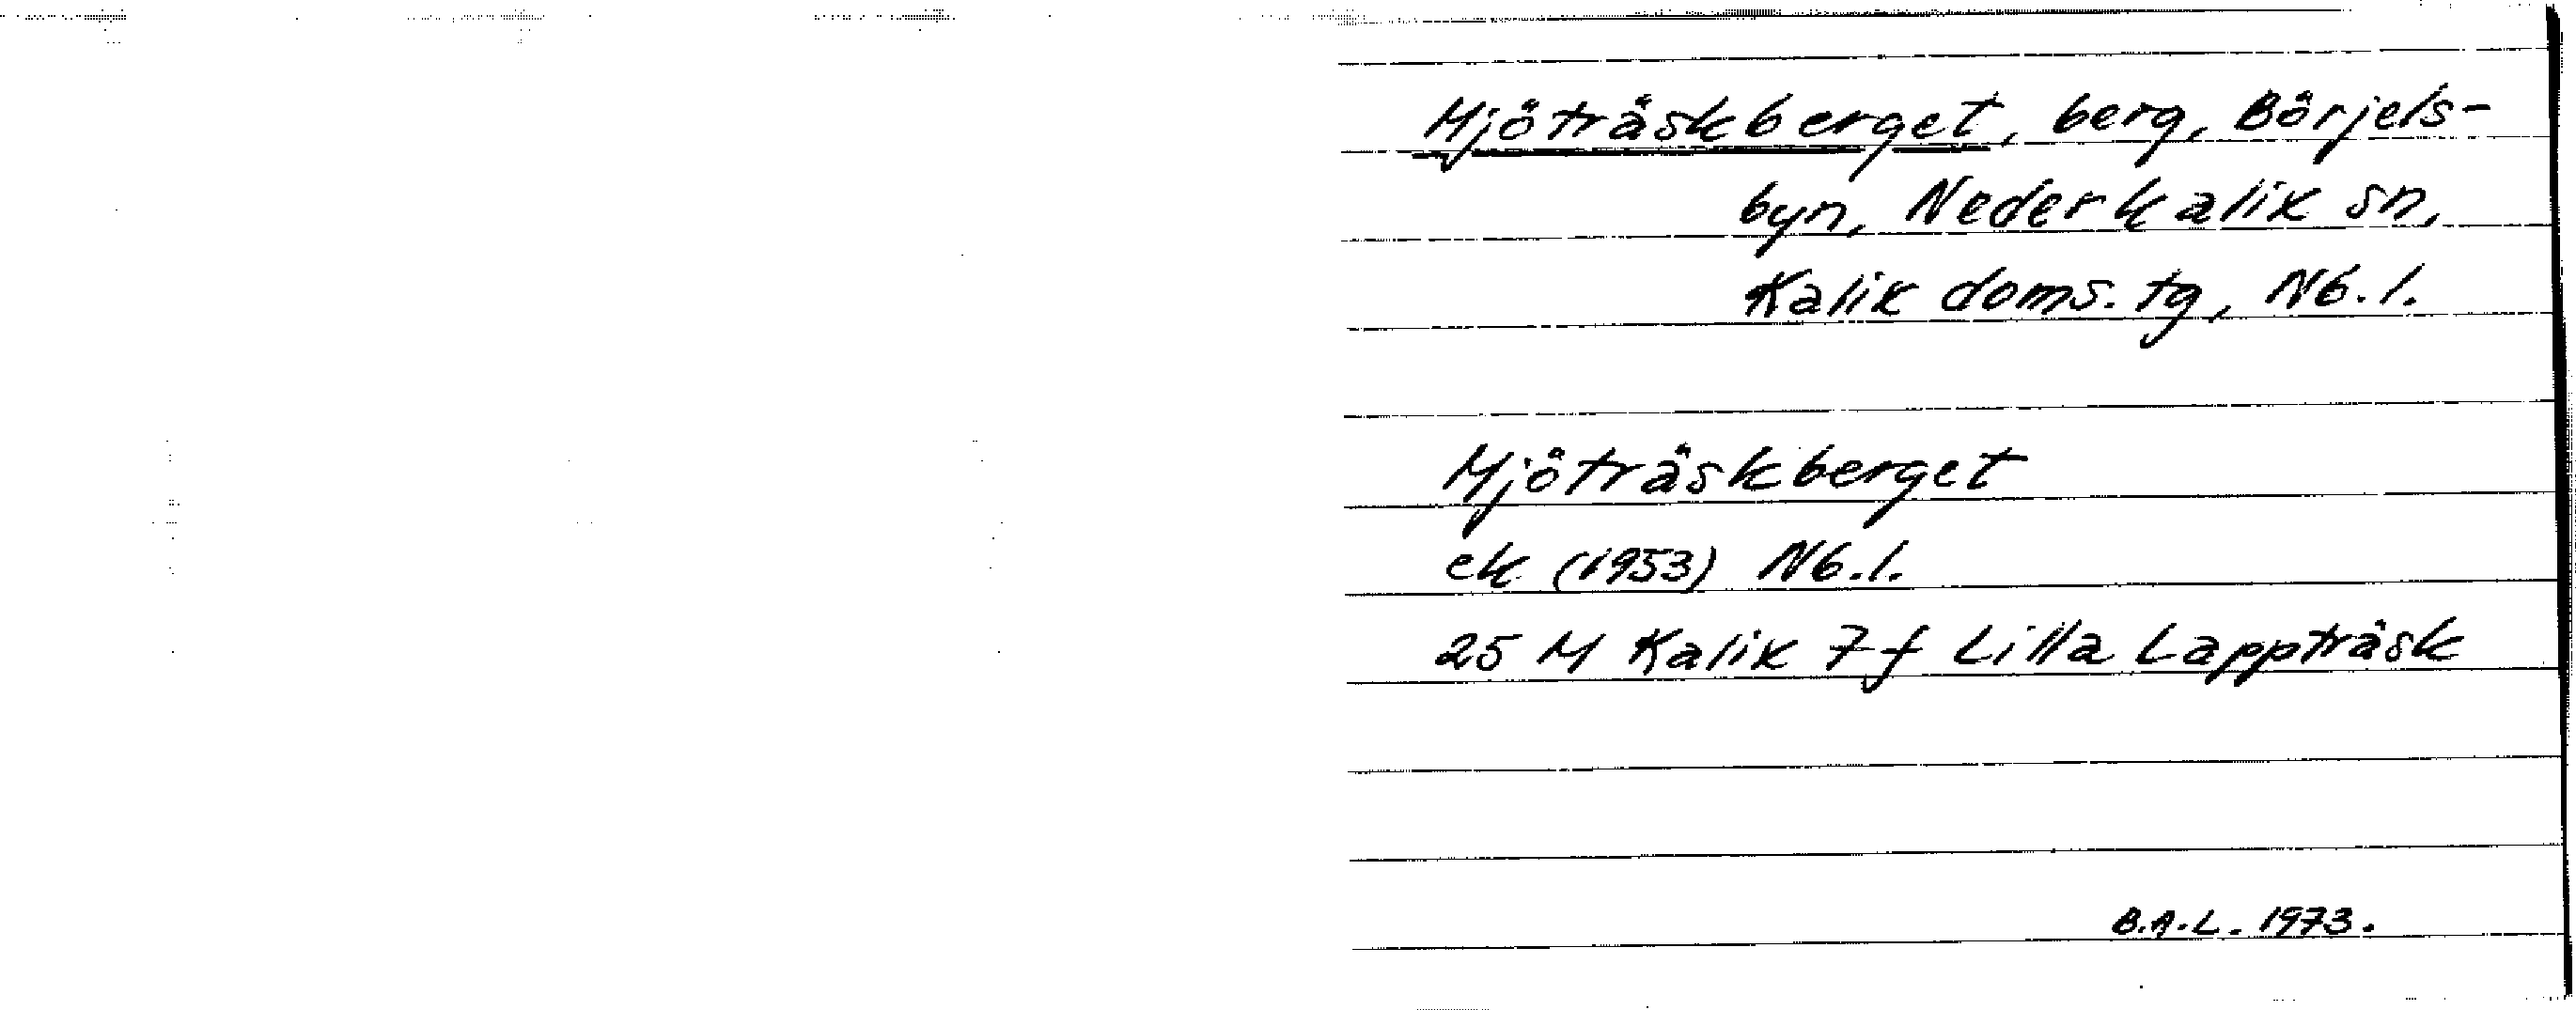 Mjöträskberget, berg, Börjels-
byn, Nederkalix sn,
Kalix doms. tg, Nb. l.
Mjöträskberget
ek (1953) Nb. l.
25 M Kalix 7f Lilla Lappträsk
B.A.L. 1973.